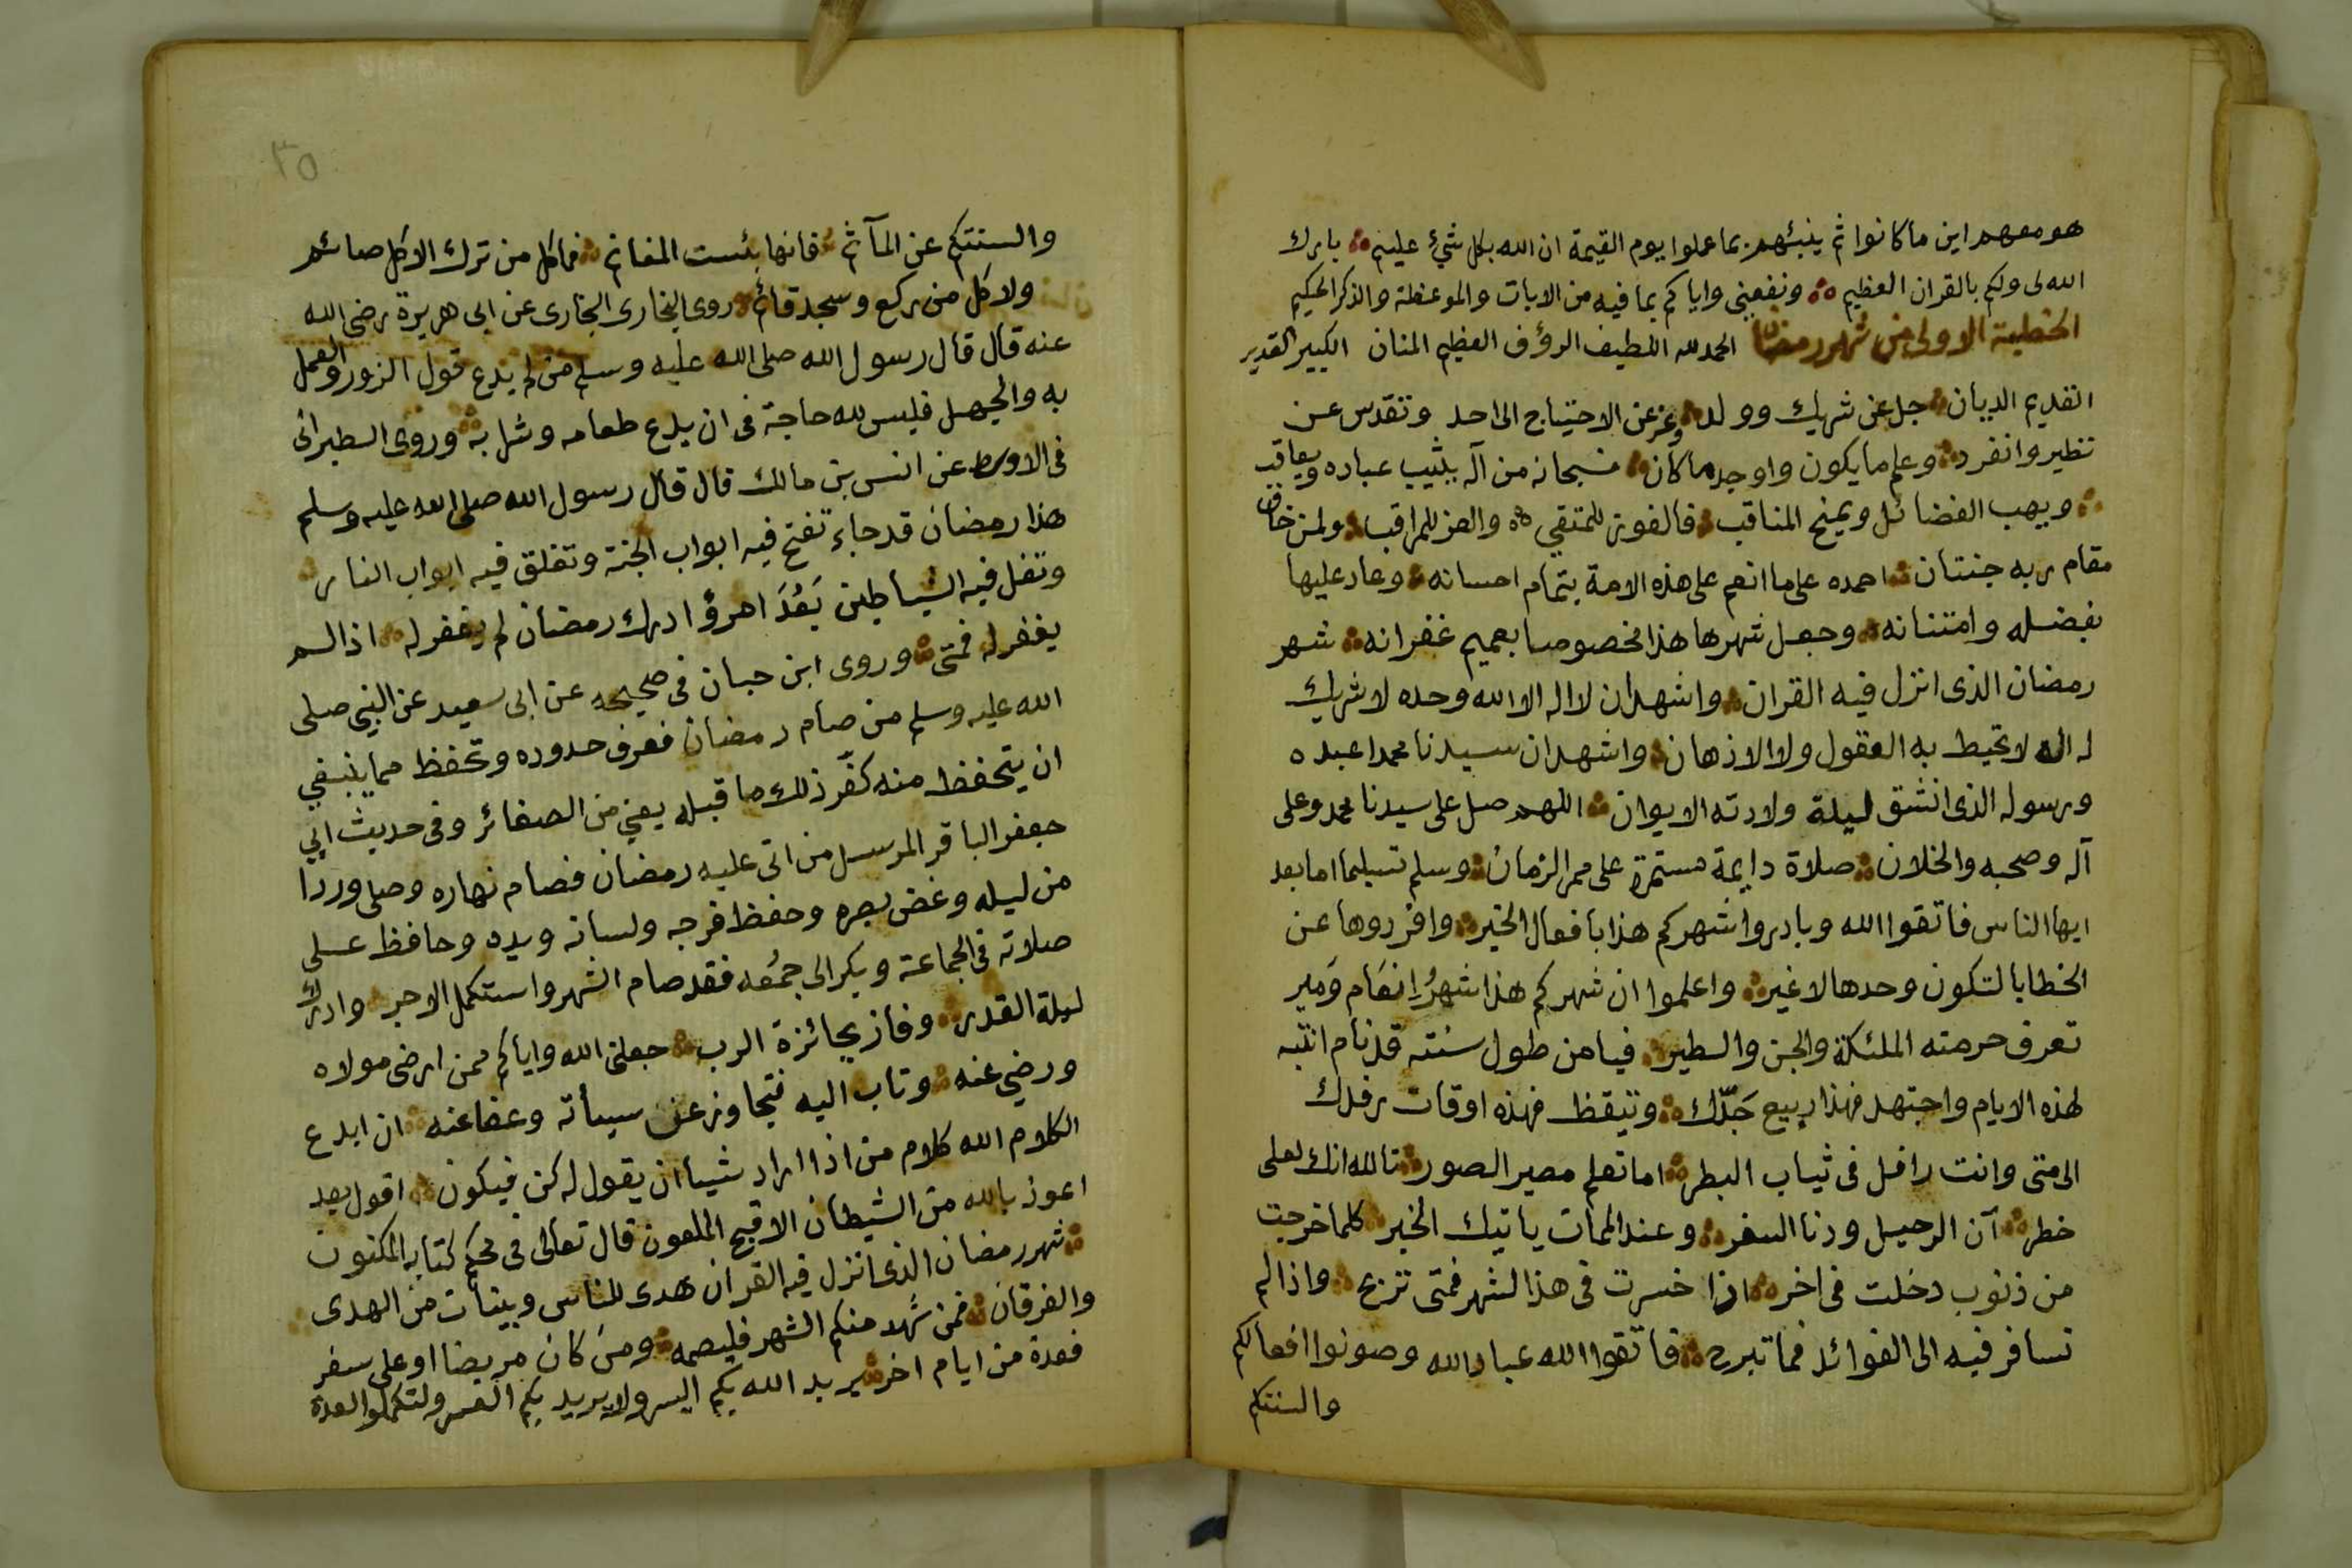 هو معهم اين ما كانوا ثم ينبئهم بما عملوا يوم القيمة ان الله بكل شيء عليم بارك
الله لى ولكم بالقران العظيم ونفعنى واياكم بما فيه من الايات والموعظة والذكر الحكيم
الخطبة الاولى من شهر رمضان الحمد لله اللطيف الرؤف العظيم المنان الكبير القدير
القديم الديان جل عن شريك وولد وعز عن الاحتياج الى احد وتقدس عن
نظير وانفرد وعلم ما يكون واوجد ما كان فسبحانه من آله يثيب عباده ويعاقب
ويهب الفضائل ويمنح المناقب فالفوز للمتقى والعز للمراقب ولمن خاف
مقام ربه جنتان احمده على ما انعم على هذه الامة بتمام احسانه وعاد عليها
بفضله وامتنانه وجعل شهرها هذا مخصوصا بعميم غفرانه شهر
رمضان الذى انزل فيه القران واشهد ان لا اله الا الله وحده لا شريك
له اله لا تحيط به العقول ولا الاذهان واشهد ان سيدنا محمدا عبده
ورسوله الذى انشق ليلة ولادته الايوان اللهم صل على سيدنا محمد وعلى
آله وصحبه والخلان صلاة دايمة مستمرة على ممر الزمان وسلم تسليما اما بعد
ايها الناس فاتقوا الله وبادروا شهركم هذا بافعال الخير وافردوها عن
الخطايا لتكون وحدها لا غير واعلموا ان شهركم هذا شهرُ اِنعَام وَمير
تعرف حرمته الملئكة والجن والطير فيا من طول سنته قد نام انتبه
لهذه الايام واجتهد فهذا ربيع جَدّك وتيقظ فهذه اوقات رفدك
الى متى وانت رافل فى ثياب البطر اما تعلم مصير الصور تالله انك لعلى
خطر آن الرحيل ودنا السفر وعند الممات ياتيك الخبر كلما خرجت
من ذنوب دخلت فى اخر اذا خسرت فى هذا الشهر فمتى تربح واذا لم
تسافر فيه الى الفوائد فما تبرح فاتقوا الله عباد الله وصونوا افعالكم
والسنتكم
٣٥
والسنتكم عن المآثم فانها بئست المغانم فما كل من ترك الاكل صائم
ولا كل من ركع وسجد قائم روى البخارى البخارى عن ابى هريرة رضى الله
عنه قال قال رسول الله صلى الله عليه وسلم من لم يدع قول الزور والعمل
به والجهل فليس لله حاجة فى ان يدع طعامه وشرابه وروى الطبرانى
فى الاوسط عن انس بن مالك قال قال رسول الله صلى الله عليه وسلم
هذا رمضان قد جاء تفتح فيه ابواب الجنة وتغلق فيه ابواب النار
وتغل فيه الشياطين بَعُدَ امرؤ ادرك رمضان لم يغفر له اذا لم
يغفر له فمتى وروى ابن حبان فى صحيحه عن ابى سعيد عن النبى صلى
الله عليه وسلم من صام رمضان فعرف حدوده وتحفظ مما ينبغي
ان يتحفظ منه كفّر ذلك ما قبله يعني من الصغائر وفى حديث ابي
جعفر الباقر المرسل من اتى عليه رمضان فصام نهاره وصلى وردا
من ليله وغض بصره وحفظ فرجه ولسانه ويده وحافظ على
صلاته فى الجماعة وبكر الى جمعه فقد صام الشهر واستكمل الاجر وادرك
ليلة القدر وفاز بجائزة الرب جعلنى الله واياكم ممن ارضى مولاه
ورضي عنه وتاب اليه فتجاوز عن سيأته وعفا عنه ان ابدع
الكلام الله كلام من اذا اراد شيأ ان يقول له كن فيكون اقول بعد
اعوذ بالله من الشيطان الاقبح الملعون قال تعالى فى محكم كتابه المكنون
شهر رمضان الذى انزل فيه القران هدى للناس وبينات من الهدى
والفرقان فمن شهد منكم الشهر فليصمه ومن كان مريضا او على سفر
فعدة من ايام اخر يريد الله بكم اليسر ولا يريد بكم العسر ولتكملوا العدة